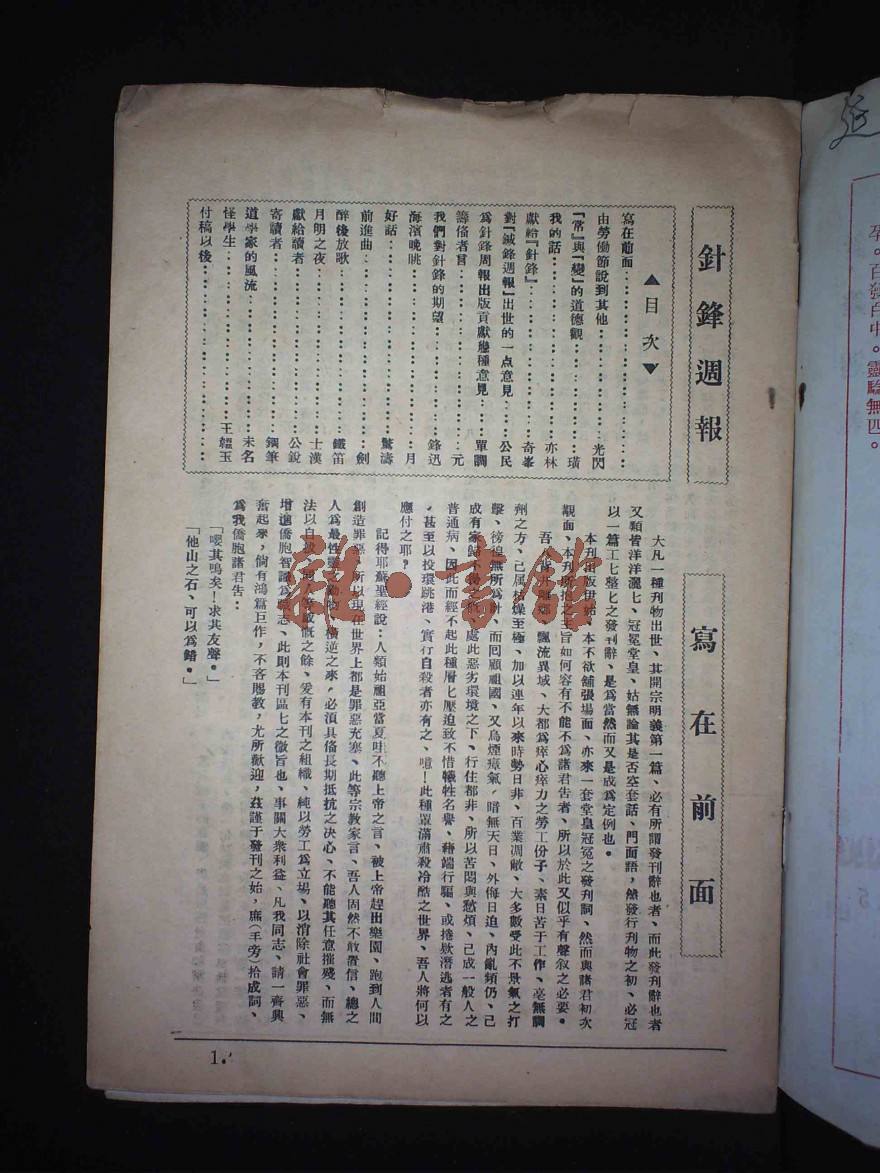 針鋒週報
▲目次▼
寫在前面
由勞働節說到其他 光閃
『常』與『變』的道德觀 璜
我的話 亦林
獻給『針鋒』 奇峯
對『鍼鋒週報』出世的一点意見 公民
爲針鋒周報出版貢獻幾種意見 單調
籌備者言 元
我們對針鋒的期望 鋒迅
海濱晚眺 月
好話 驚濤
前進曲 劍
醉後放歌 鐵笛
月明之夜 士漢
獻給讀者 公銳
寄讀者 鋼筆
道學家的風流 未名
怪學生 王韞玉
付稿以後
寫在前面
大凡一種刋物出世、其開宗明義第一篇、必有所謂發刋辭也者、而此發刋辭也者
又類皆洋洋灑匕、冠冕堂皇、姑無論其是否空套話、門面語，然發行刋物之初、必冠
以一篇工匕整匕之發刋辭、是爲當然而又是成爲定例也。
本刋出版伊始、本不欲舖張塲面、亦來一套堂皇冠冕之發刋詞、然而與諸君初次
覿面、本刋所抱之主旨如何容有不能不爲諸君吿者、所以於此又似乎有聲叙之必要。
吾人背井離鄉、飄流異域、大都爲瘁心瘁力之勞工份子、素日苦于工作、毫無調
劑之方、已属枯燥至極、加以連年以來時勢日非、百業凋敝、大多數受此不景氣之打
擊、徬徨無所爲計、而囘顧祖國、又烏煙瘴氣，暗無天日、外侮日迫、內亂頻仍、已
成有家歸不得之勢、處此惡劣環境之下、行住都非、所以苦悶與愁煩、已成一般人之
普通病、因此而經不起此種層匕壓迫致不惜犧牲名譽、藉端行騙、或捲欵潛逃者有之
，甚至以投環跳港、實行自殺者亦有之、噫！此種罩滿肅殺冷酷之世界、吾人將何以
應付之耶？
記得耶蘇聖經說：人類始祖亞當夏哇不聽上帝之言、被上帝趕出樂園、跑到人間
創造罪惡、所以現在世界上都是罪惡充塞、此等宗敎家言、吾人固然不敢置信、總之
人爲最性靈之動物、橫逆之來，必須具備長期抵抗之决心、不能聽其任意摧殘、而無
法以自救、同人等感慨之餘、爰有本刋之組織、純以勞工爲立塲、以消除社會罪惡、
增進僑胞智識爲職志、此則本刋區匕之微旨也、事關大衆利益、凡我同志、請一齊興
奮起來，倘有鴻篇巨作，不吝賜敎，尤所歡迎，玆謹于發刋之始，㢘(手旁)拾成詞、
爲我僑胞諸君吿：
「嚶其鳴矣！求其友聲。」
「他山之石、可以爲錯。」
1.
雜·書館
孕。百發百中。靈騐無匹。